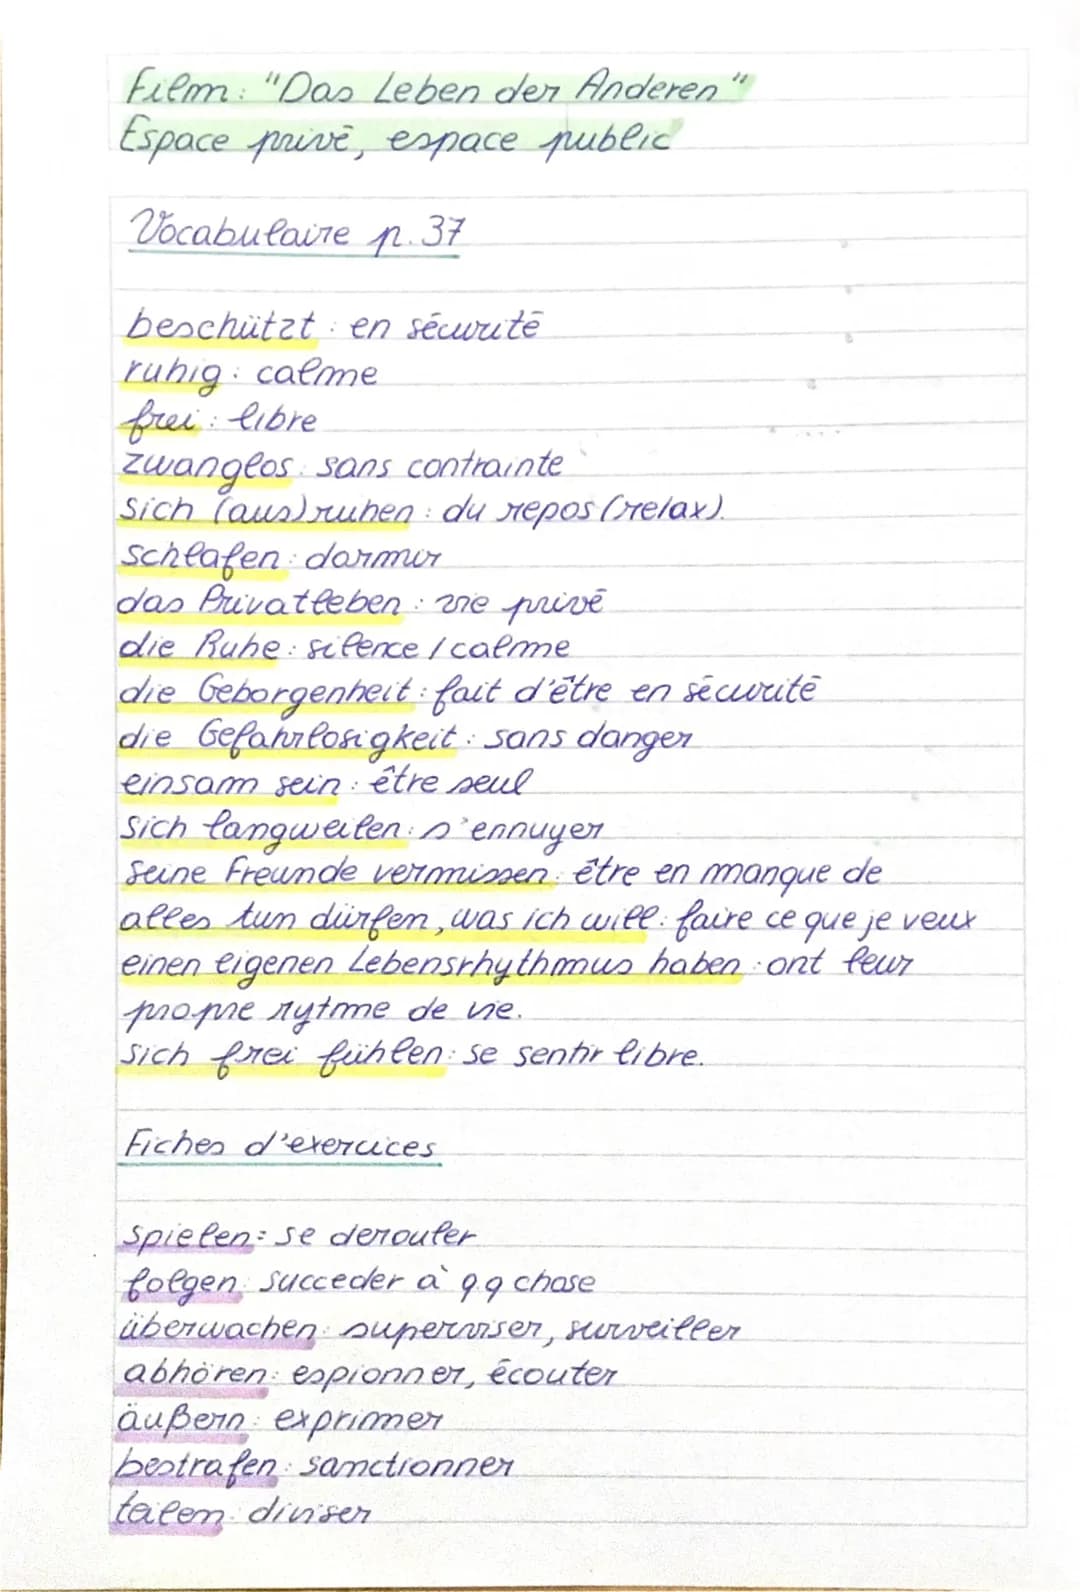 Film: "Das Leben der Anderen"
Espace privé, espace public
Vocabulaire p.37
beschützt: en sécurité
ruhig: calme
frei: libre
zwanglos: sans contrainte
sich (aus)ruhen: du repos (relax).
schlafen: dormir
das Privatleben: vie privé
die Ruhe: silence / calme
die Geborgenheit: fait d'être en sécurité
die Gefahrlosigkeit: sans danger
einsam sein: être seul
sich langweilen: s'ennuyer
seine Freunde vermissen: être en manque de
alles tun dürfen, was ich will: faire ce que je veux
einen eigenen Lebensrhythmus haben: ont leur
propre rytme de vie.
sich frei fühlen: se sentir libre.
Fiches d'exercices
spielen: se derouler
folgen: succeder à q.q chose
überwachen: superviser, surveiller
abhören: espionner, écouter
äußern: exprimer
bestrafen: sanctionner
teilen: diviser